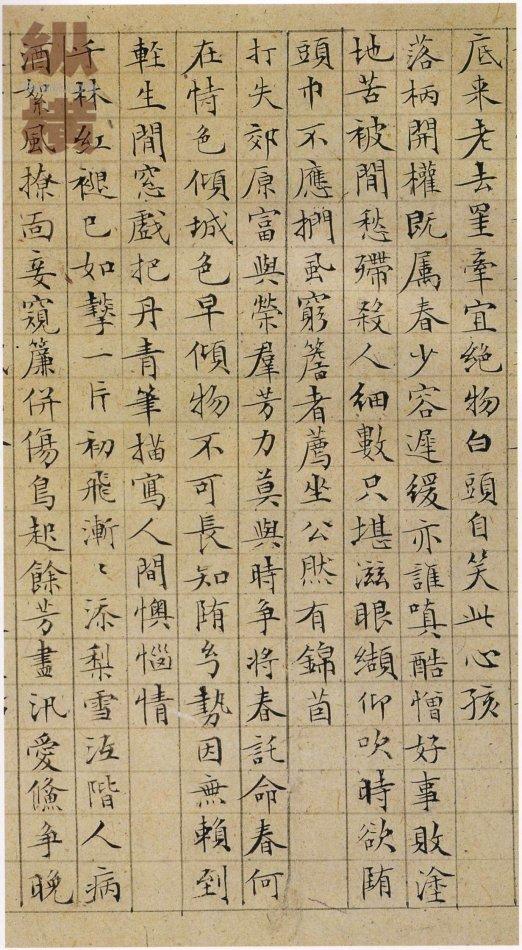 底来老去罣牽宜絶物白頭自笑此心孩
落柄開權既属春少容遲緩亦誰嗔酷憎好事敗塗
地苦被閒愁殢殺人細數只堪滋眼纈仰吹時欲陏
頭巾不應捫風窮簷者薦坐公然有錦茵
打失郊原富與榮羣芳力莫與時争将春託命春何
在恃色傾城色早傾物不可長知陏兮勢因無賴到
軽生閒窓戲把丹青筆描寫人間懊惱情
千林紅褪已如擊一片初飛漸〻添梨雪泣階人病
酒絮風撩面妾窺簾併傷鳥起餘芳盡汛愛鯈争晚
纵横